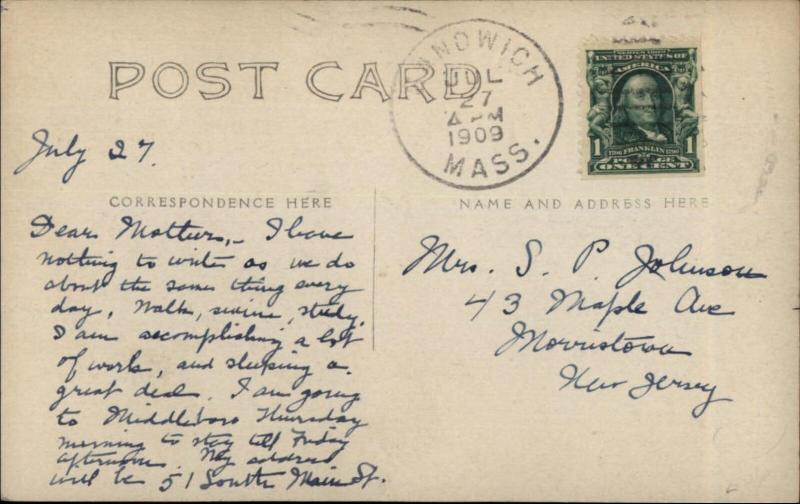 POST CARD
SANDWICH
JUL
27
4 PM
1909
MASS.
UNITED STATES OF
AMERICA
1 FRANKLIN 1
POSTAGE
ONE CENT
July 27.
CORRESPONDENCE HERE
Dear Mother,- I have
nothing to write as we do
about the same thing every
day, walk, swim, study.
I am accomplishing a lot
of work, and sleeping a
great deal. I am going
to Middleboro Thursday
morning to stay till Friday
afternoon. My address
will be 51 South Main St.
NAME AND ADDRESS HERE
Mrs. S. P. Johnson
43 Maple Ave
Morristown
New Jersey